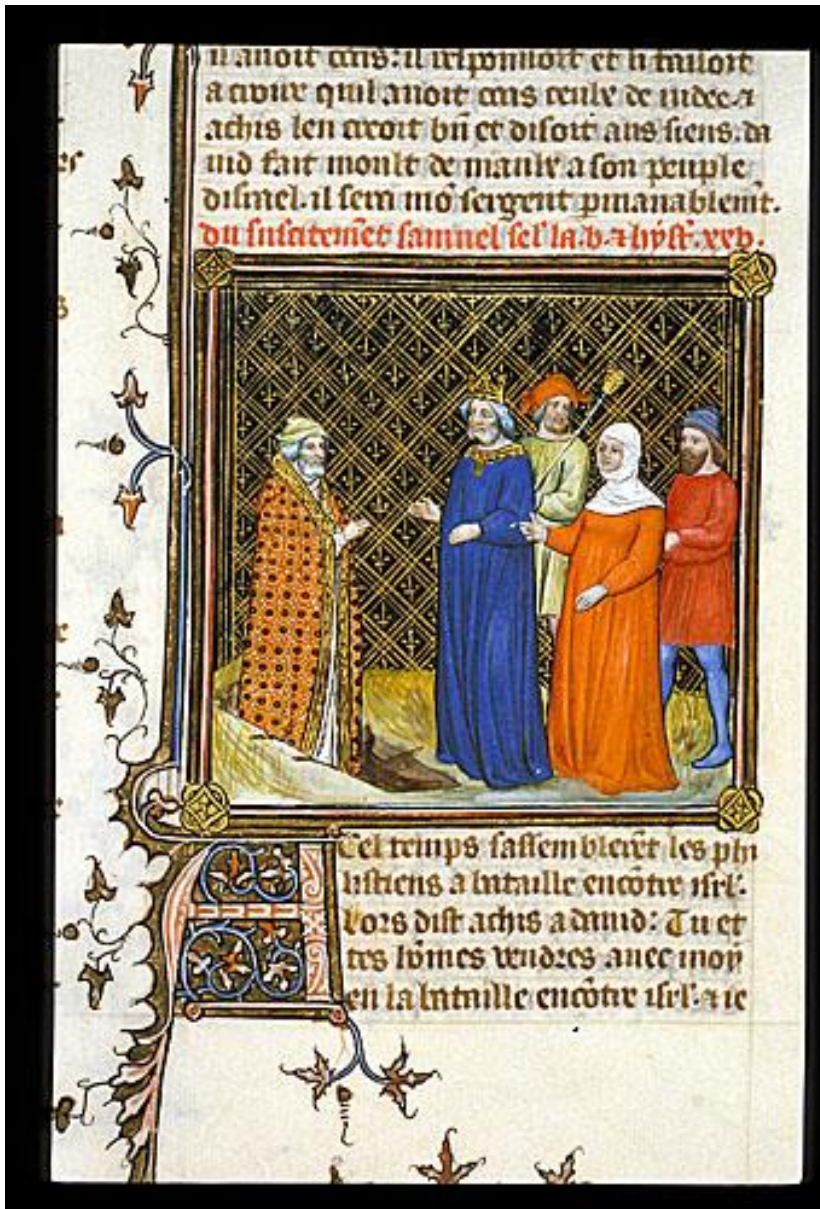 il auoit coru: il responnoit et li failoit
a croire quil auoit coru ceulz de iudee. ⁊
achis len creoit bn̄ et disoit aus siens. da
uid fait moult de maulz a son peuple
disrael. il sera mō sergent ꝑmanablemt̄.
du suscitemēt samuel sel' la. b. ⁊ hyst'. xxv.
A Cel temps sassemblerēt les phi
listiens a bataille encōtre isrl'.
Lors dist achis a dauid: Tu et
tes hōmes vendres auec moy
en la bataille encōtre isrl'. ⁊ ie